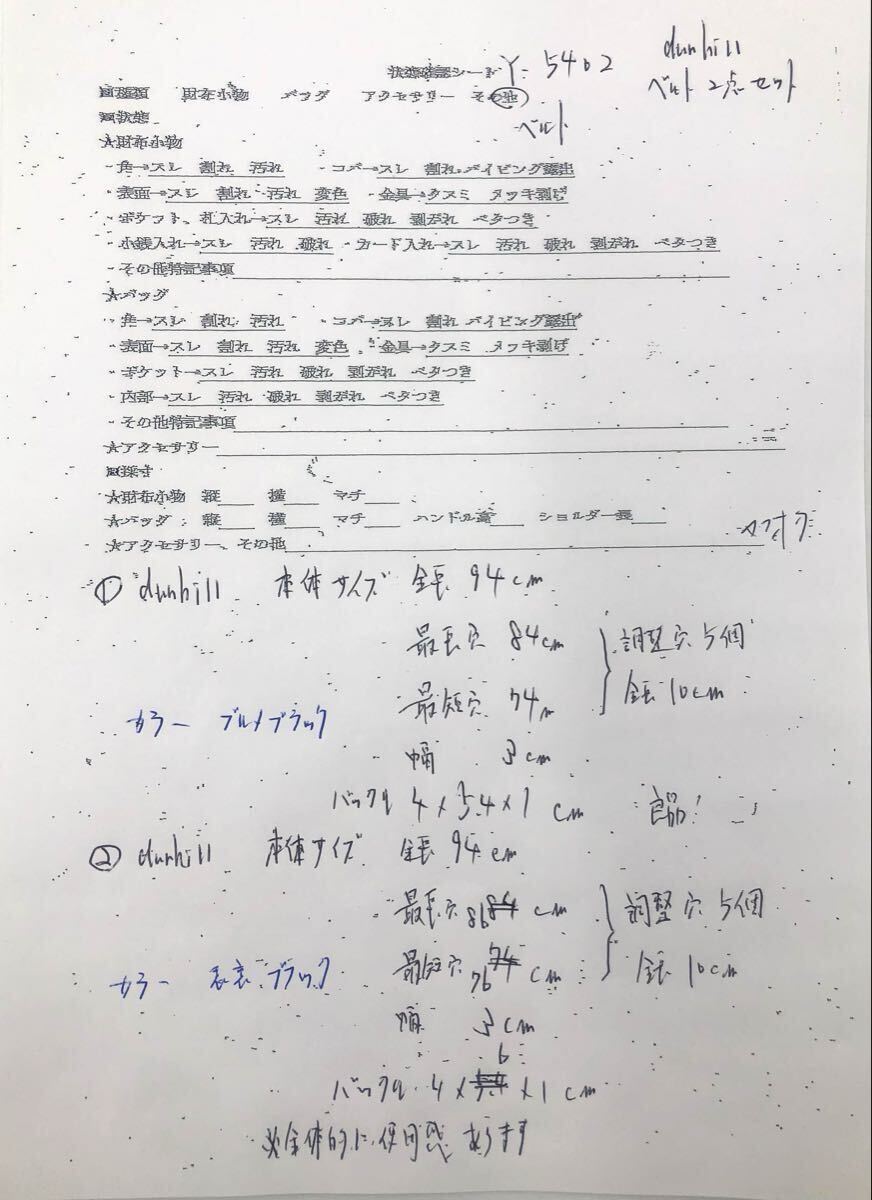 状態確認シート Y-5402 dunhill
ベルト 2点セット
■種類 財布小物 バッグ アクセサリー その他
ベルト
■状態
★財布小物
・角→スレ 割れ 汚れ ・コバ→スレ 割れ パイピング露出
・表面→スレ 割れ 汚れ 変色 ・金具→クスミ メッキ剥げ
・ポケット、札入れ→スレ 汚れ 破れ 剥がれ ベタつき
・小銭入れ→スレ 汚れ 破れ ・カード入れ→スレ 汚れ 破れ 剥がれ ベタつき
・その他特記事項
★バッグ
・角→スレ 割れ 汚れ ・コバ→スレ 割れ パイピング露出
・表面→スレ 割れ 汚れ 変色 ・金具→クスミ メッキ剥げ
・ポケット→スレ 汚れ 破れ 剥がれ ベタつき
・内部→スレ 汚れ 破れ 剥がれ ベタつき
・その他特記事項
★アクセサリー
■採寸
★財布小物 縦 横 マチ
★バッグ 縦 横 マチ ハンドル高 ショルダー長
★アクセサリー、その他
ヤフオク
① dunhill 本体サイズ 全長 94cm
最長穴 84cm 調整穴 5個
最短穴 74m 全長 10cm
カラー ブルメブラック
幅 3cm
バックル 4×5.4×1 cm 良品
② dunhill 本体サイズ 全長 94cm
最長穴 86 84 cm 調整穴 5個
最短穴 76 74 cm 全長 10cm
カラー 表裏ブラック
幅 3cm
6
バックル 4×5.4×1 cm
※全体的に使用感あります